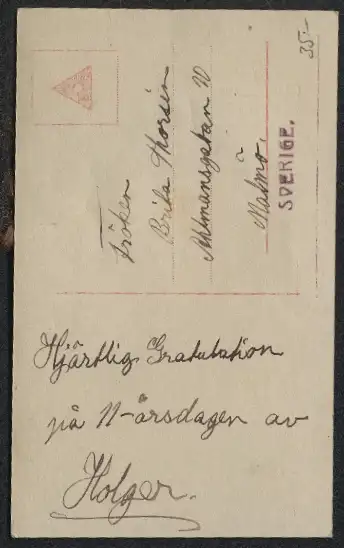 Fröken
Brita Thorsén
Ahlmansgatan 10
Malmö.
SVERIGE.
35:-
Hjärtlig Gratulation
på 11-årsdagen av
Holger.